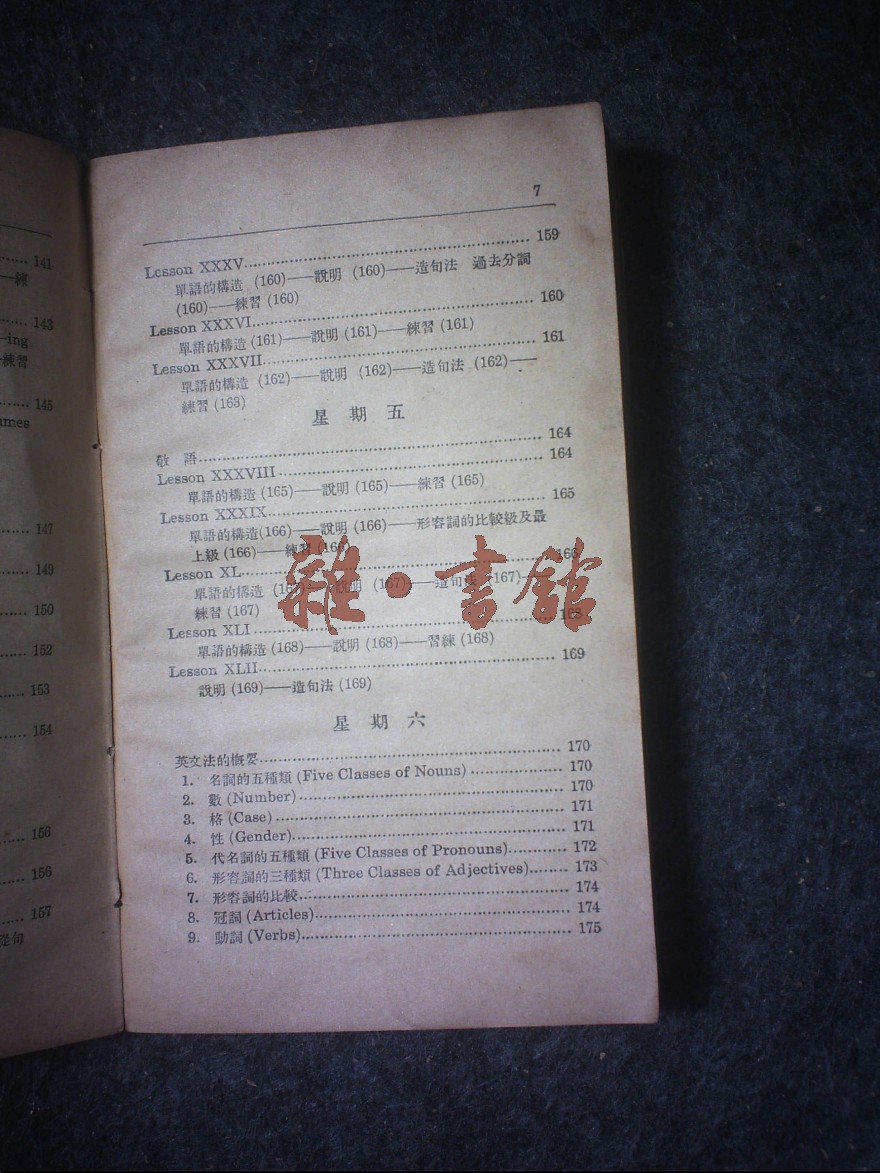 141
練
143
-ing
練習
145
umes
147
149
150
152
153
154
156
156
157
從句
7
Lesson XXXV 159
單語的構造 (160)——說明 (160)——造句法 過去分詞
(160)——練習 (160)
Lesson XXXVI 160
單語的構造 (161)——說明 (161)——練習 (161)
Lesson XXXVII 161
單語的構造 (162)——說明 (162)——造句法 (162)——
練習 (163)
星期五
敬語 164
Lesson XXXVIII 164
單語的構造 (165)——說明 (165)——練習 (165)
Lesson XXXIX 165
單語的構造(166)——說明 (166)——形容詞的比較級及最
上級 (166)——練習 (166)
Lesson XL 166
單語的構造 (167)——說明 (167)——造句法 (167)——
練習 (167)
Lesson XLI 168
單語的構造 (168)——說明 (168)——習練 (168)
Lesson XLII 169
說明 (169)——造句法 (169)
星期六
英文法的概要 170
1. 名詞的五種類 (Five Classes of Nouns) 170
2. 數 (Number) 170
3. 格 (Case) 171
4. 性 (Gender) 171
5. 代名詞的五種類 (Five Classes of Pronouns) 172
6. 形容詞的三種類 (Three Classes of Adjectives) 173
7. 形容詞的比較 174
8. 冠詞 (Articles) 174
9. 動詞 (Verbs) 175
雜·書館